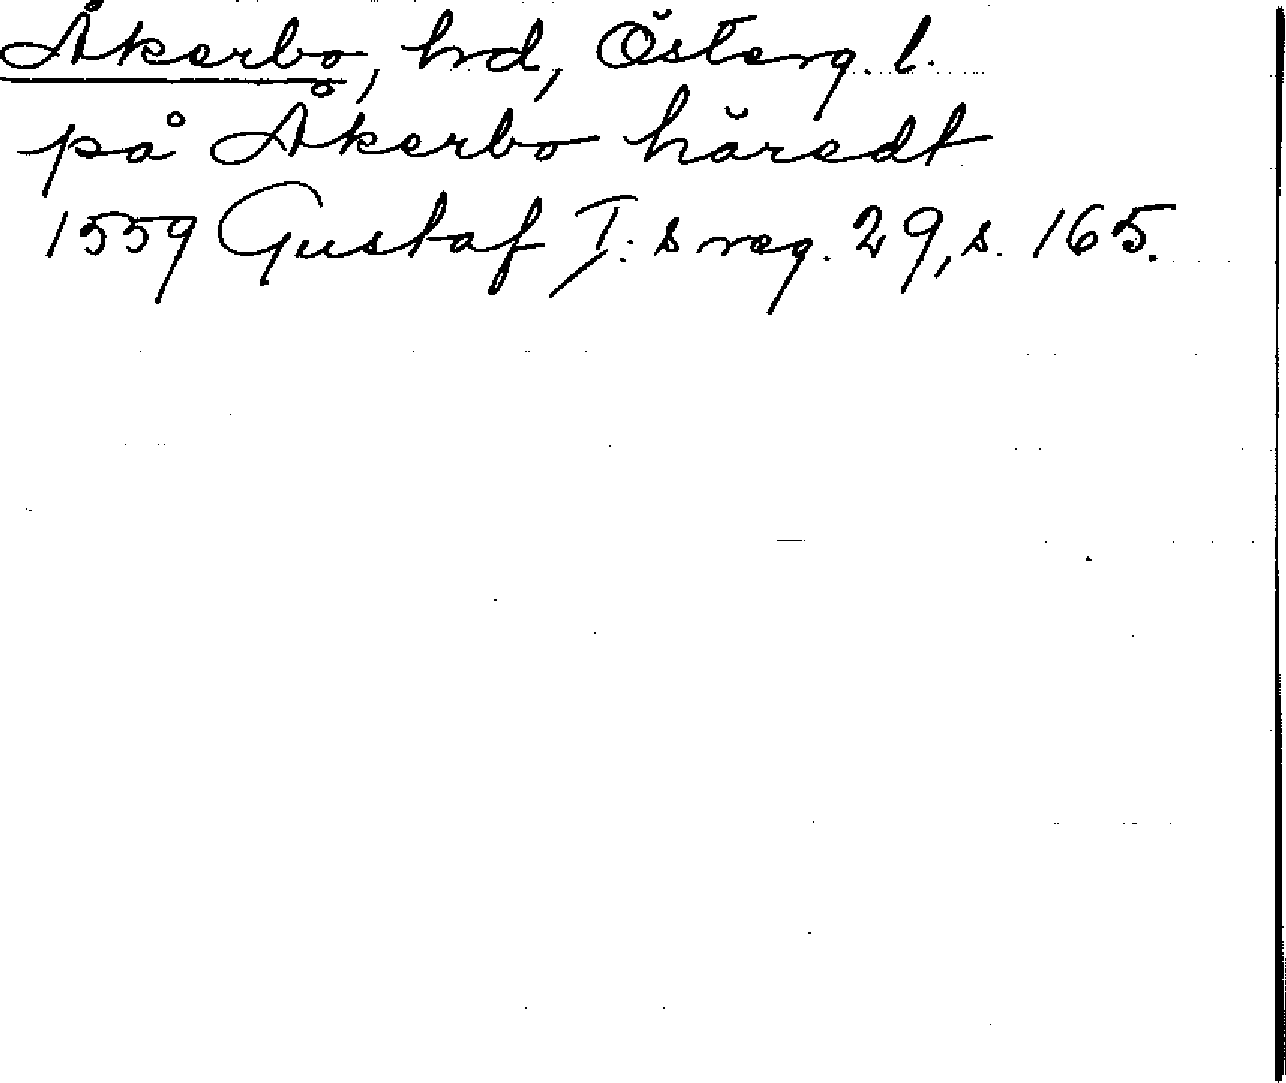 Åkerbo, hrd, Österg. l.
på Åkerbo häredt
1559 Gustaf I:s reg. 29, s. 165.